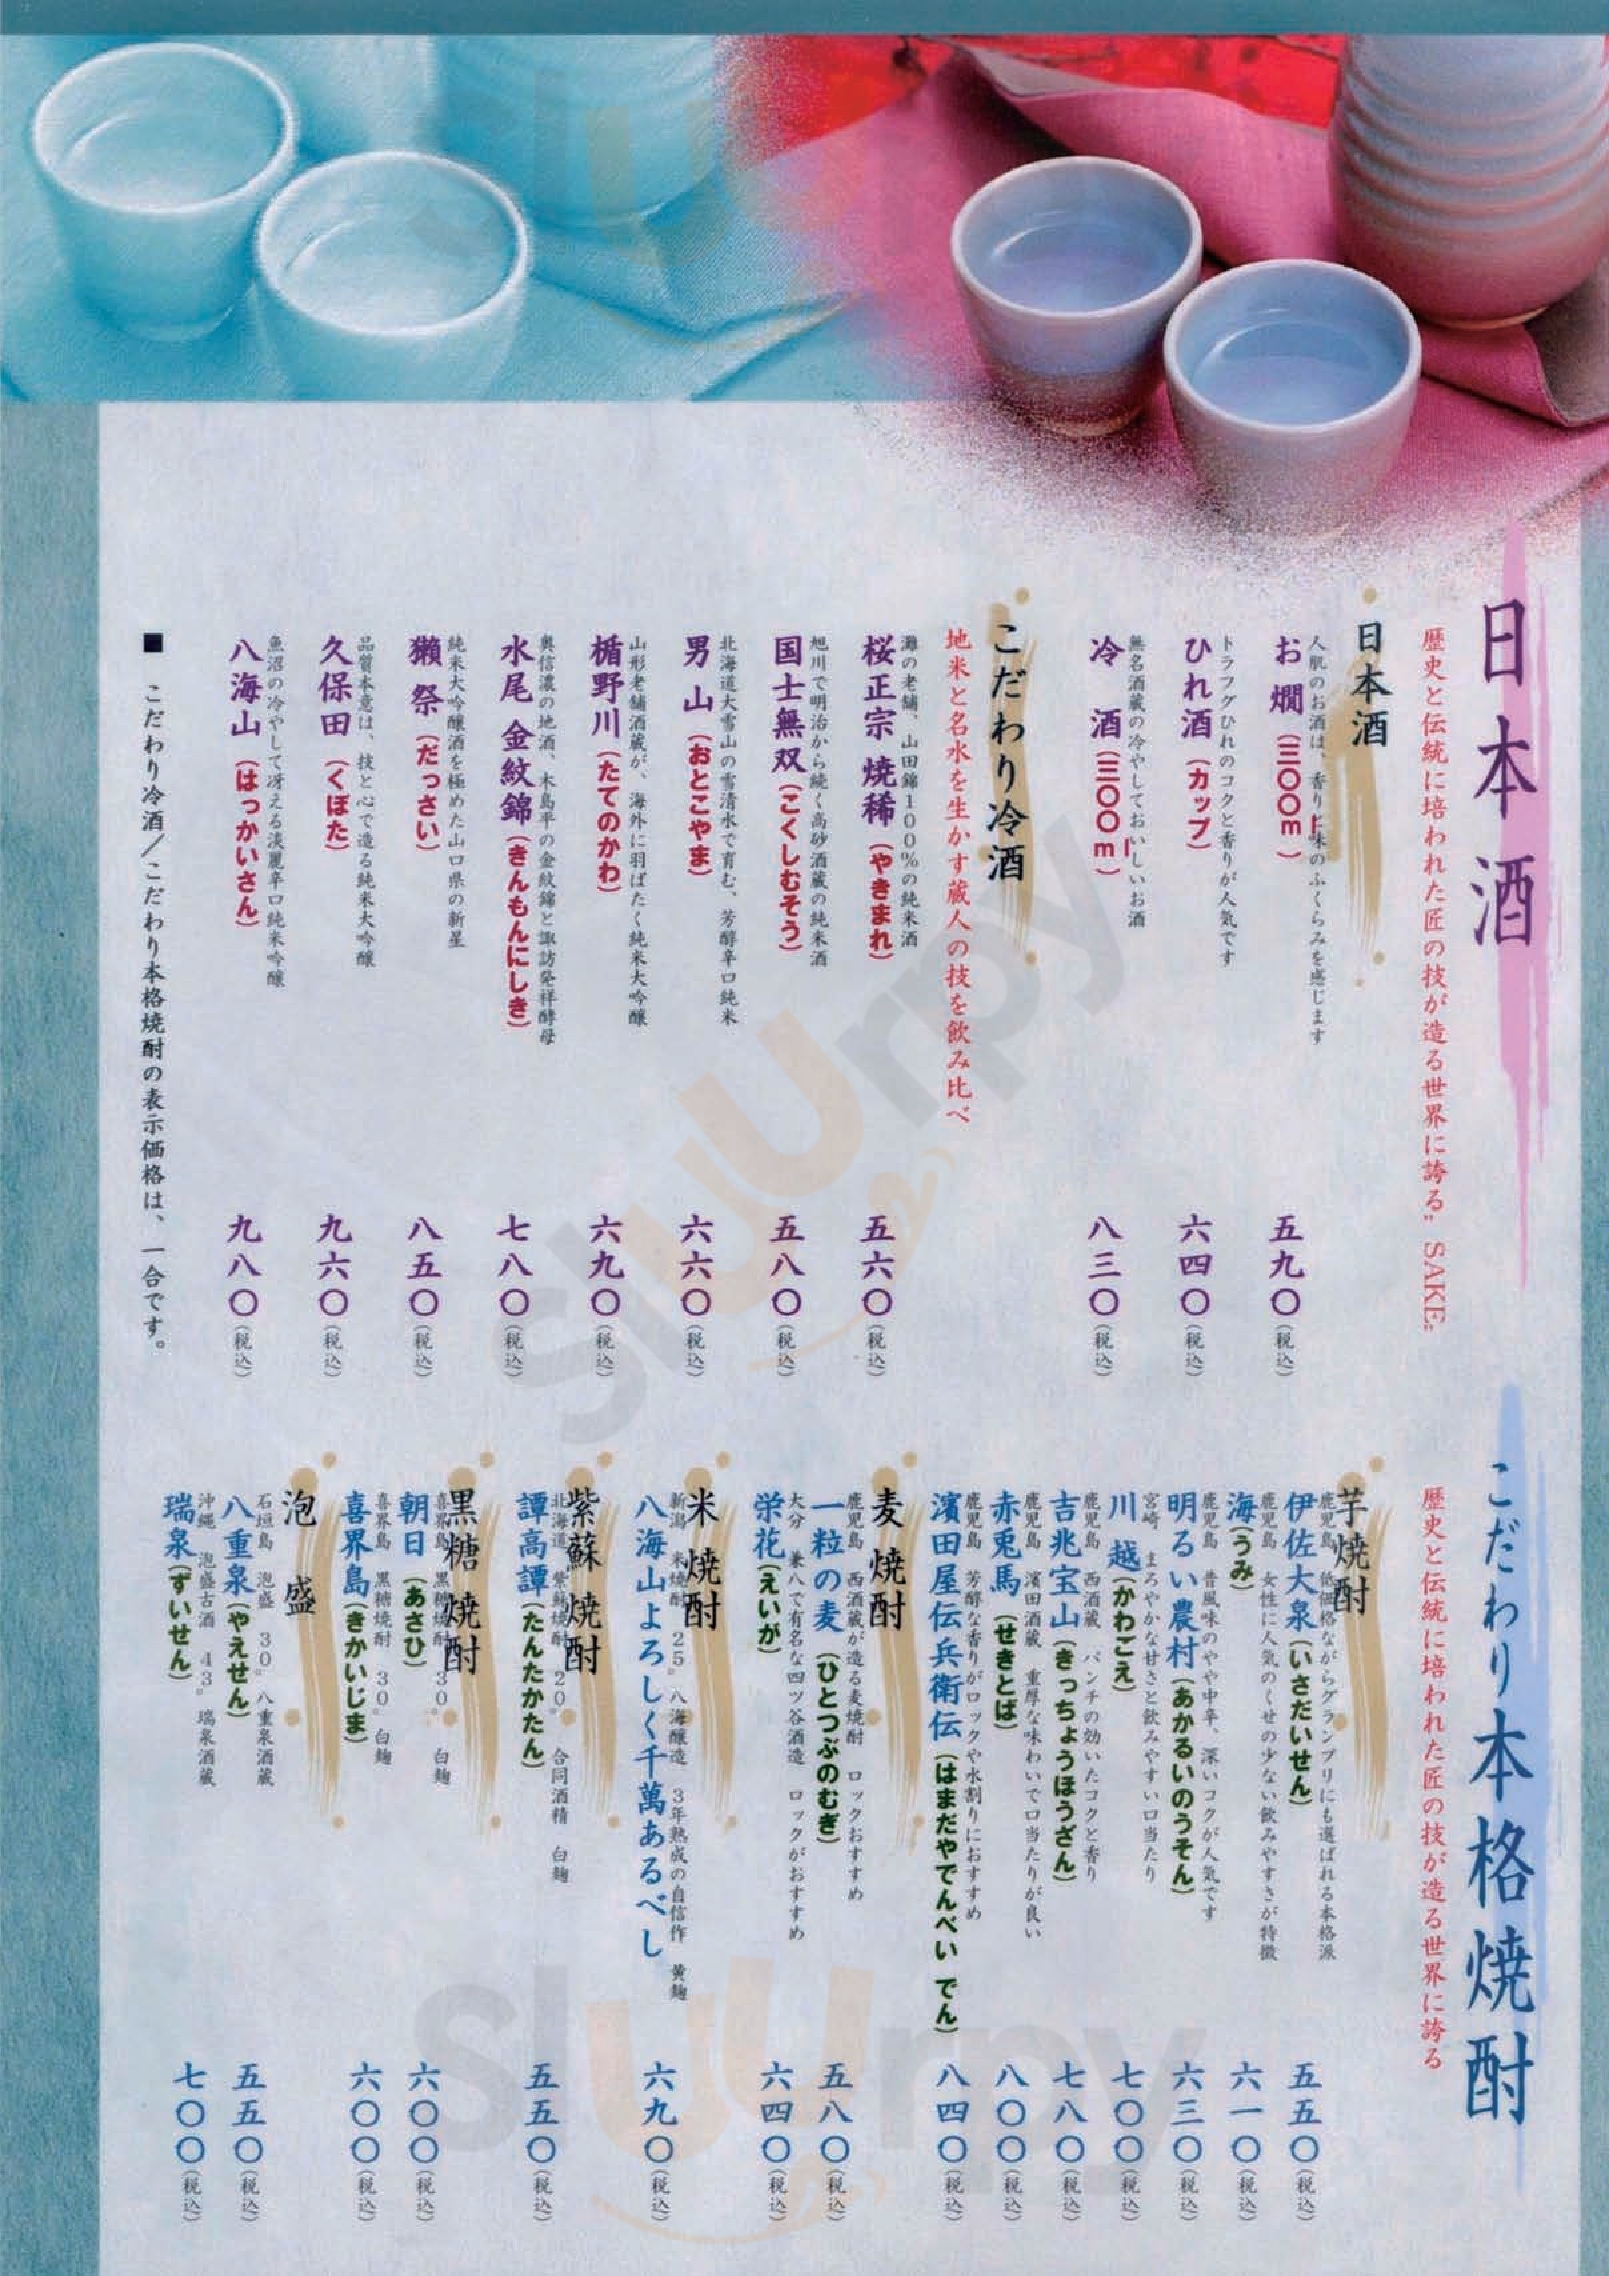 日本酒
歴史と伝統に培われた匠の技が造る世界に誇る"SAKE"
日本酒
人肌のお酒は、香りと味のふくらみを感じます
お燗（三〇〇ｍｌ）
五九〇（税込）
トラフグひれのコクと香りが人気です
ひれ酒（カップ）
六四〇（税込）
無名酒蔵の冷やしておいしいお酒
冷 酒（三〇〇ｍｌ）
八三〇（税込）
こだわり冷酒
地米と名水を生かす蔵人の技を飲み比べ
灘の老舗、山田錦１００％の純米酒
桜正宗 焼稀（やきまれ）
五六〇（税込）
旭川で明治から続く高砂酒蔵の純米酒
国士無双（こくしむそう）
五八〇（税込）
北海道大雪山の雪清水で育む、芳醇辛口純米
男 山（おとこやま）
六六〇（税込）
山形老舗酒蔵が、海外に羽ばたく純米大吟醸
楯野川（たてのかわ）
六九〇（税込）
奥信濃の地酒、木島平の金紋錦と諏訪発祥酵母
水尾 金紋錦（きんもんにしき）
七八〇（税込）
純米大吟醸酒を極めた山口県の新星
獺 祭（だっさい）
八五〇（税込）
品質本意は、技と心で造る純米大吟醸
久保田（くぼた）
九六〇（税込）
魚沼の冷やして冴える淡麗辛口純米吟醸
八海山（はっかいさん）
九八〇（税込）
■ こだわり冷酒／こだわり本格焼酎の表示価格は、一合です。
こだわり本格焼酎
歴史と伝統に培われた匠の技が造る世界に誇る
芋焼酎
鹿児島 低価格ながらグランプリにも選ばれる本格派
伊佐大泉（いさだいせん）
五五〇（税込）
鹿児島 女性に人気のくせの少ない飲みやすさが特徴
海（うみ）
六一〇（税込）
鹿児島 昔風味のやや中辛、深いコクが人気です
明るい農村（あかるいのうそん）
六三〇（税込）
宮崎 まろやかな甘さと飲みやすい口当たり
川 越（かわごえ）
七〇〇（税込）
鹿児島 西酒蔵 パンチの効いたコクと香り
吉兆宝山（きっちょうほうざん）
七八〇（税込）
鹿児島 濱田酒蔵 重厚な味わいで口当たりが良い
赤兎馬（せきとば）
八〇〇（税込）
鹿児島 芳醇な香りがロックや水割りにおすすめ
濱田屋伝兵衛伝（はまだやでんべい でん）
八四〇（税込）
麦 焼酎
鹿児島 西酒蔵が造る麦焼酎 ロックおすすめ
一粒の麦（ひとつぶのむぎ）
五八〇（税込）
大分 兼八で有名な四ツ谷酒造 ロックがおすすめ
栄花（えいが）
六四〇（税込）
米 焼酎
新潟 米焼酎 ２５° 八海醸造 ３年熟成の自信作 黄麹
八海山よろしく千萬あるべし
六九〇（税込）
紫蘇 焼酎
北海道 紫蘇焼酎 ２０° 合同酒精 白麹
譚高譚（たんたかたん）
五五〇（税込）
黒糖 焼酎
喜界島 黒糖焼酎 ３０° 白麹
朝日（あさひ）
六〇〇（税込）
喜界島 黒糖焼酎 ３０° 白麹
喜界島（きかいじま）
六〇〇（税込）
泡 盛
石垣島 泡盛 ３０° 八重泉酒蔵
八重泉（やえせん）
五五〇（税込）
沖縄 泡盛古酒 ４３° 瑞泉酒蔵
瑞泉（ずいせん）
七〇〇（税込）
Sluurpy
Sluurpy
Sluurpy